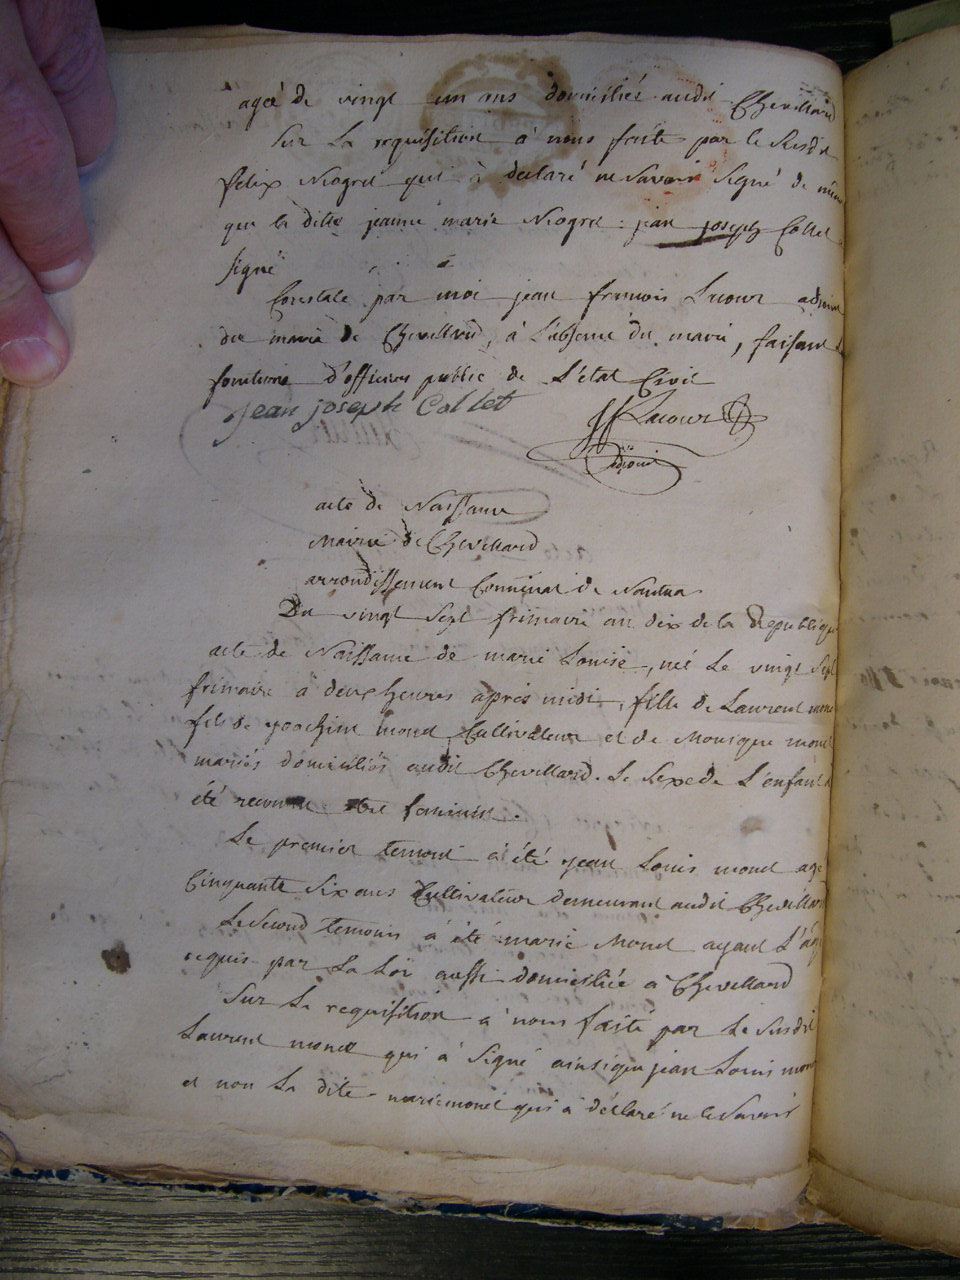 agée de vingt un ans domiciliés audit Chevillard
Sur La requisition à nous faite par le Susdit
felix Niogret qui à declaré ne Savoir Signé de même
que la ditte jeanne marie Niogret. jean joseph Collet
signé
Constaté par moi jean francois Lacour adjoint
du maire de Chevillard, à L'absence du maire, faisant
fonctions d'officier public de L'état Civil
Jean joseph Collet
JF Lacour
adjoint
acte de Naissance
Mairie de Chevillard
arrondissement Communal de Nantua
Du vingt Sept frimaire an dix de la Republique
acte de Naissance de marie Louise, née Le vingt Sept
frimaire à deux heures après midi, fille de Laurent monet
fils de joachim monet Cultivateur et de Monique monet
mariés domiciliés audit Chevillard. Le Sexe de L'enfant à
été reconnu être feminin.
Le premier temoin à été jean Louis monet agé
Cinquante Six ans Cultivateur demeurant audit Chevillard
Le Second temoin à été marie Monet ayant L'âge
requis par La Loi aussi domiciliée à Chevillard
Sur La requisition à nous faite par Le Susdit
Laurent monet qui à Signé ainsi que jean Louis monet
et non La dite marie monet qui à déclaré ne le Savoir